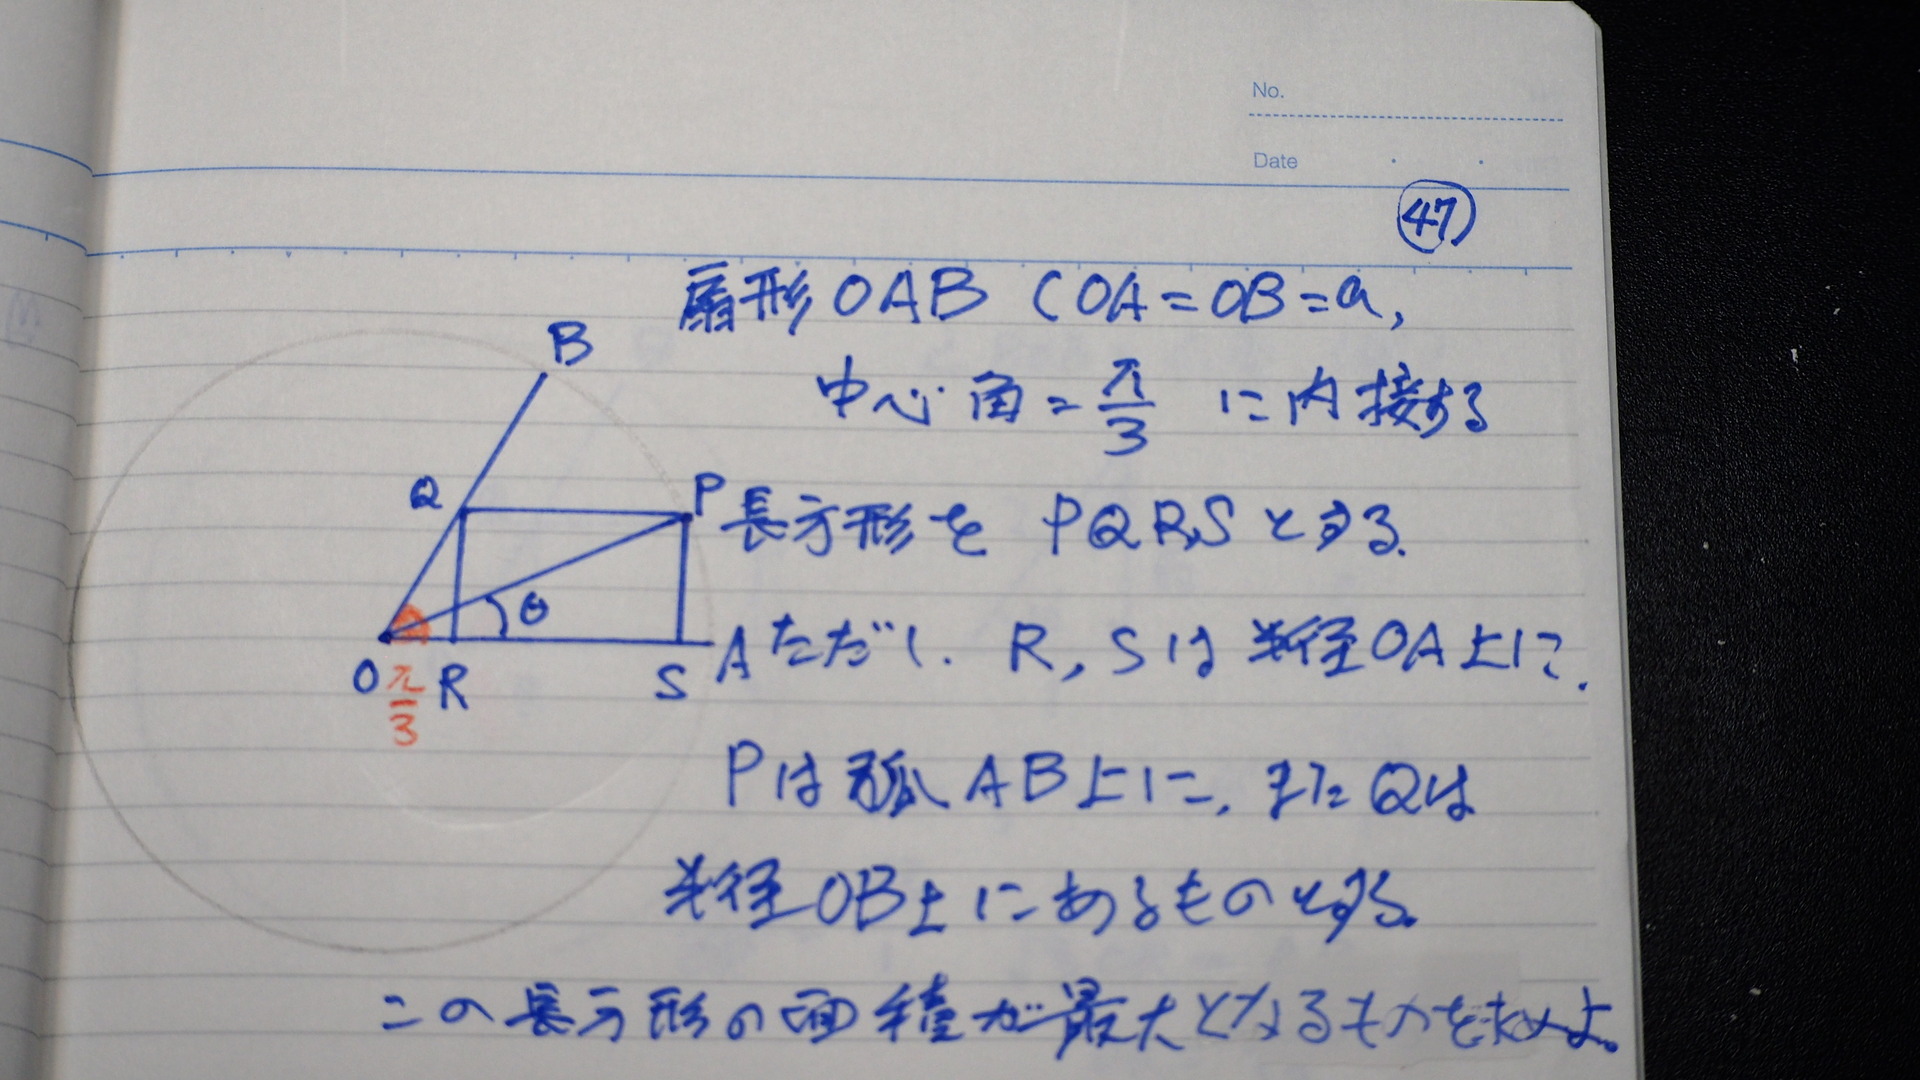 No.
Date
47
扇形OAB (OA=OB=a,
中心角=π/3 に内接する
長方形を PQRSとする.
ただし. R, Sは半径OA上に.
Pは弧AB上に, またQは
半径OB上にあるものとする.
この長方形の面積が最大となるものを求めよ。
B
Q
P
θ
O
π/3
R
S
A